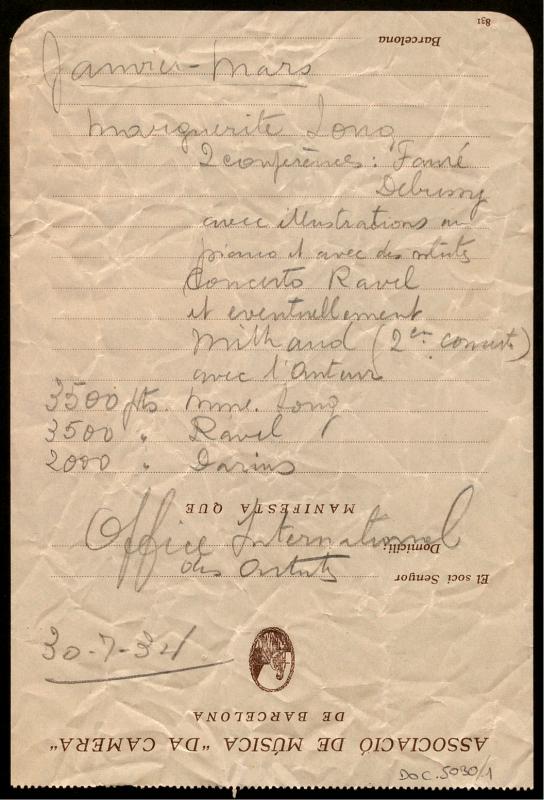 Janvier - Mars
Marguerite Long
2 conférences: Fauré
Debussy
avec illustrations au
piano et avec des artistes
Concerto Ravel
et eventuellement
Milhaud (2en concerto)
avec l'Auteur
3500 pts. Mme. Long
3500 " Ravel
2000 " Darius
Office International
des Artists
30-7-34
DOC. 5030/1
ASSOCIACIÓ DE MÚSICA "DA CAMERA"
DE BARCELONA
El soci Senyor
Domicili:
MANIFESTA QUE
Barcelona
831